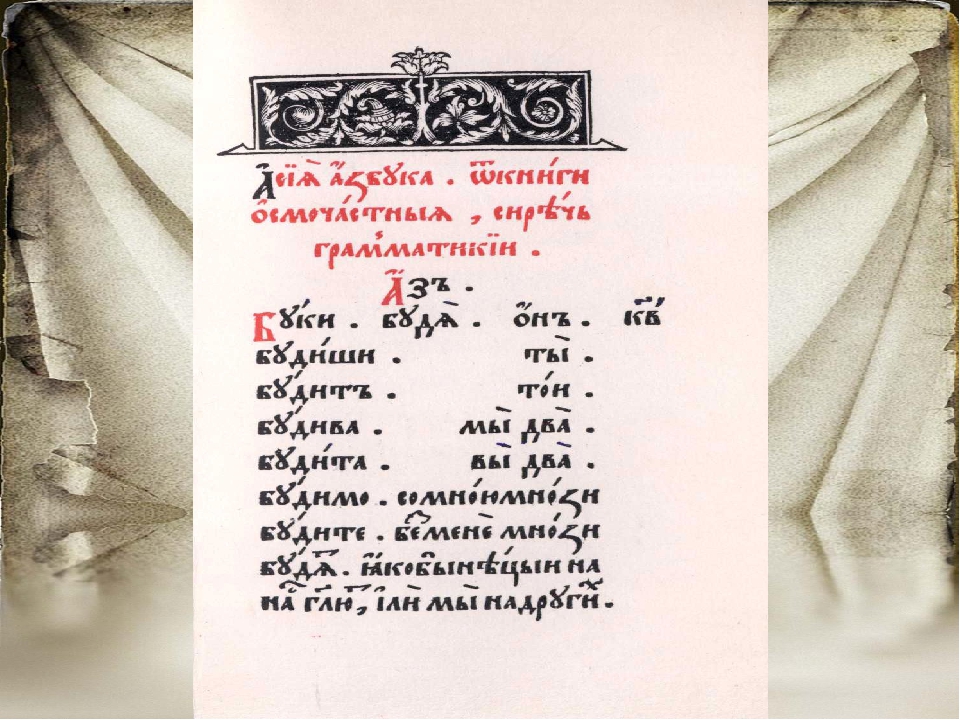 А҆сїѧ̀ а҆́ꙁбꙋка . ѿкни́ги
о҆смоча́стныѧ , сирѣ́чь
грам̾матикїи .
А҆́зъ .
Бꙋ́ки . бꙋдѧ̀ . о҆́нъ . кв҃
бꙋди́ши . ты̀ .
бꙋ́дитъ . то́и .
бꙋ́дива . мы̀ два̀ .
бꙋди́та . вы̀ два̀ .
бꙋ́димо . сомно́юмно́ꙁи
бꙋ́дите . бе́менѐ мно́ꙁи
бꙋ́дѧⷮ . ꙗ҆́кобынѣ́цыи на
на̑ гл҃юⷮ , і҆лѝ мы̀ надрꙋгиⷯ .